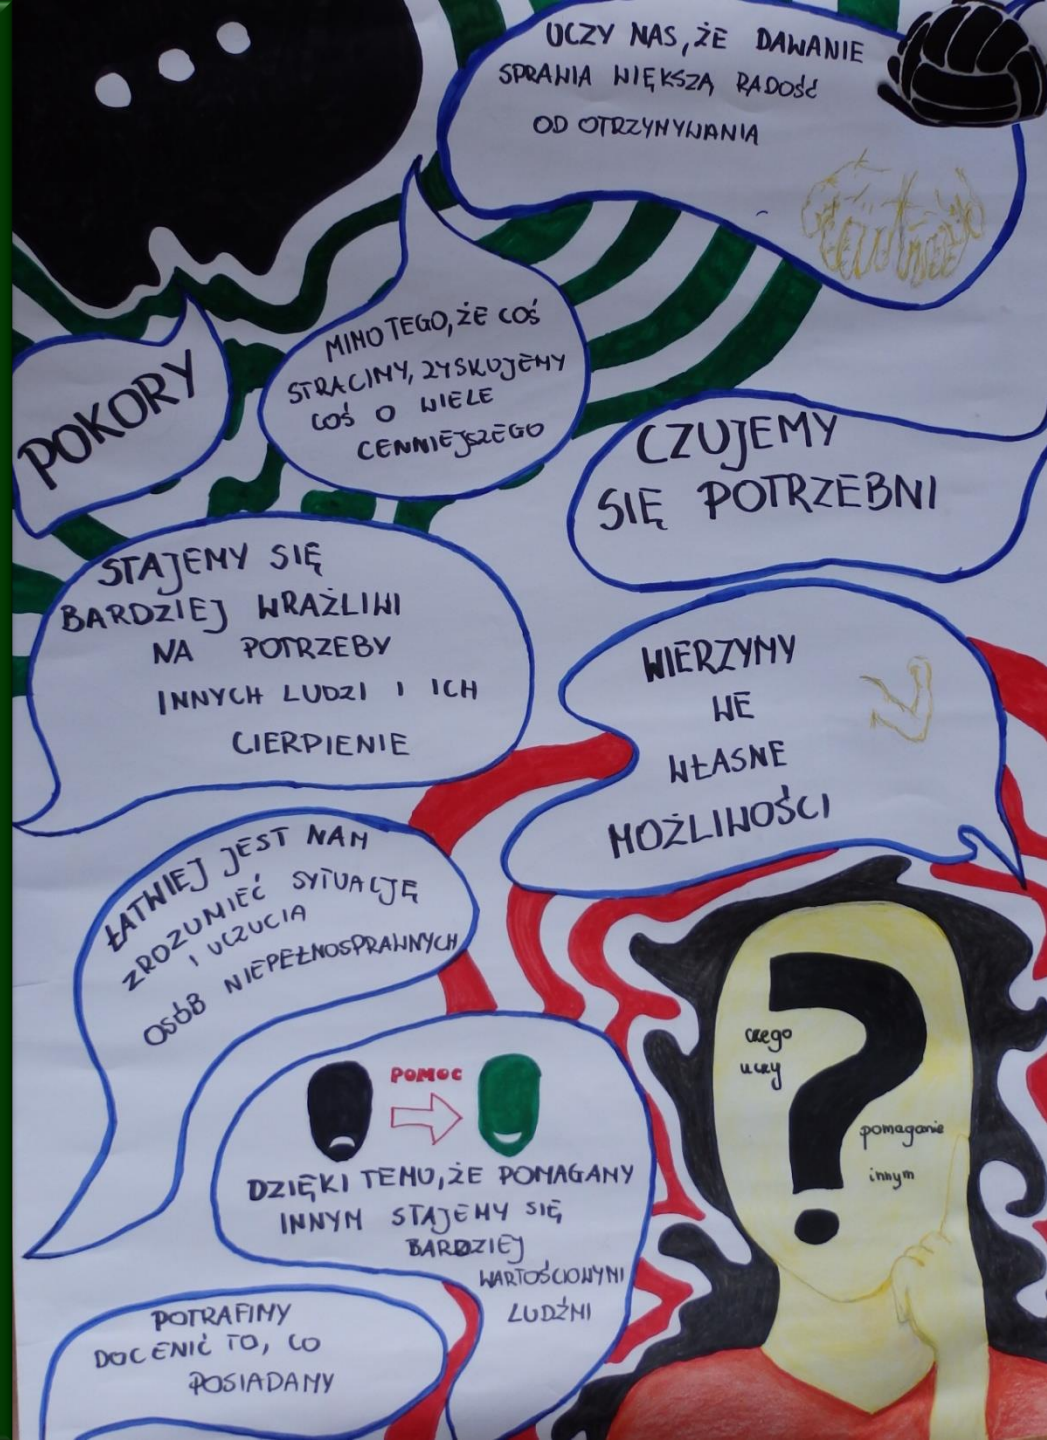 UCZY NAS, ŻE DAWANIE
SPRAWIA WIĘKSZĄ RADOŚĆ
OD OTRZYMYWANIA
MIMO TEGO, ŻE COŚ
STRACIMY, ZYSKUJEMY
COŚ O WIELE
CENNIEJSZEGO
POKORY
CZUJEMY
SIĘ POTRZEBNI
STAJEMY SIĘ
BARDZIEJ WRAŻLIWI
NA POTRZEBY
INNYCH LUDZI I ICH
CIERPIENIE
WIERZYMY
WE
WŁASNE
MOŻLIWOŚCI
ŁATWIEJ JEST NAM
ZROZUMIEĆ SYTUACJĘ
I UCZUCIA
OSÓB NIEPEŁNOSPRAWNYCH
czego
uczy
pomaganie
innym
POMOC
DZIĘKI TEMU, ŻE POMAGAMY
INNYM STAJEMY SIĘ
BARDZIEJ
WARTOŚCIOWYMI
LUDŹMI
POTRAFIMY
DOCENIĆ TO, CO
POSIADAMY